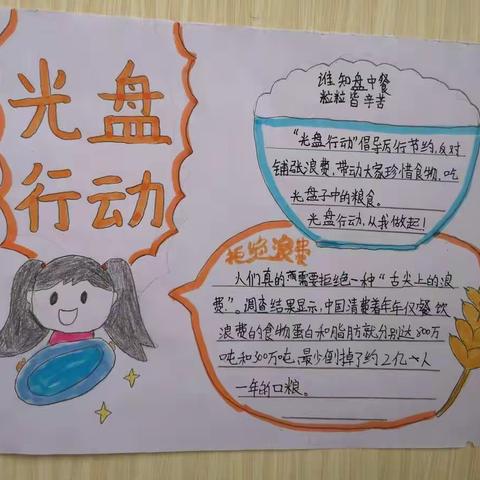 光盘
行动
谁知盘中餐
粒粒皆辛苦
“光盘行动”倡导厉行节约,反对
铺张浪费,带动大家珍惜食物,吃
光盘子中的粮食。
光盘行动,从我做起!
拒绝浪费
人们真的需要拒绝一种“舌尖上的浪
费”。调查结果显示,中国消费者年年仅餐饮
浪费的食物蛋白和脂肪就分别达800万
吨和300万吨,最少倒掉了约2亿人
一年的口粮。